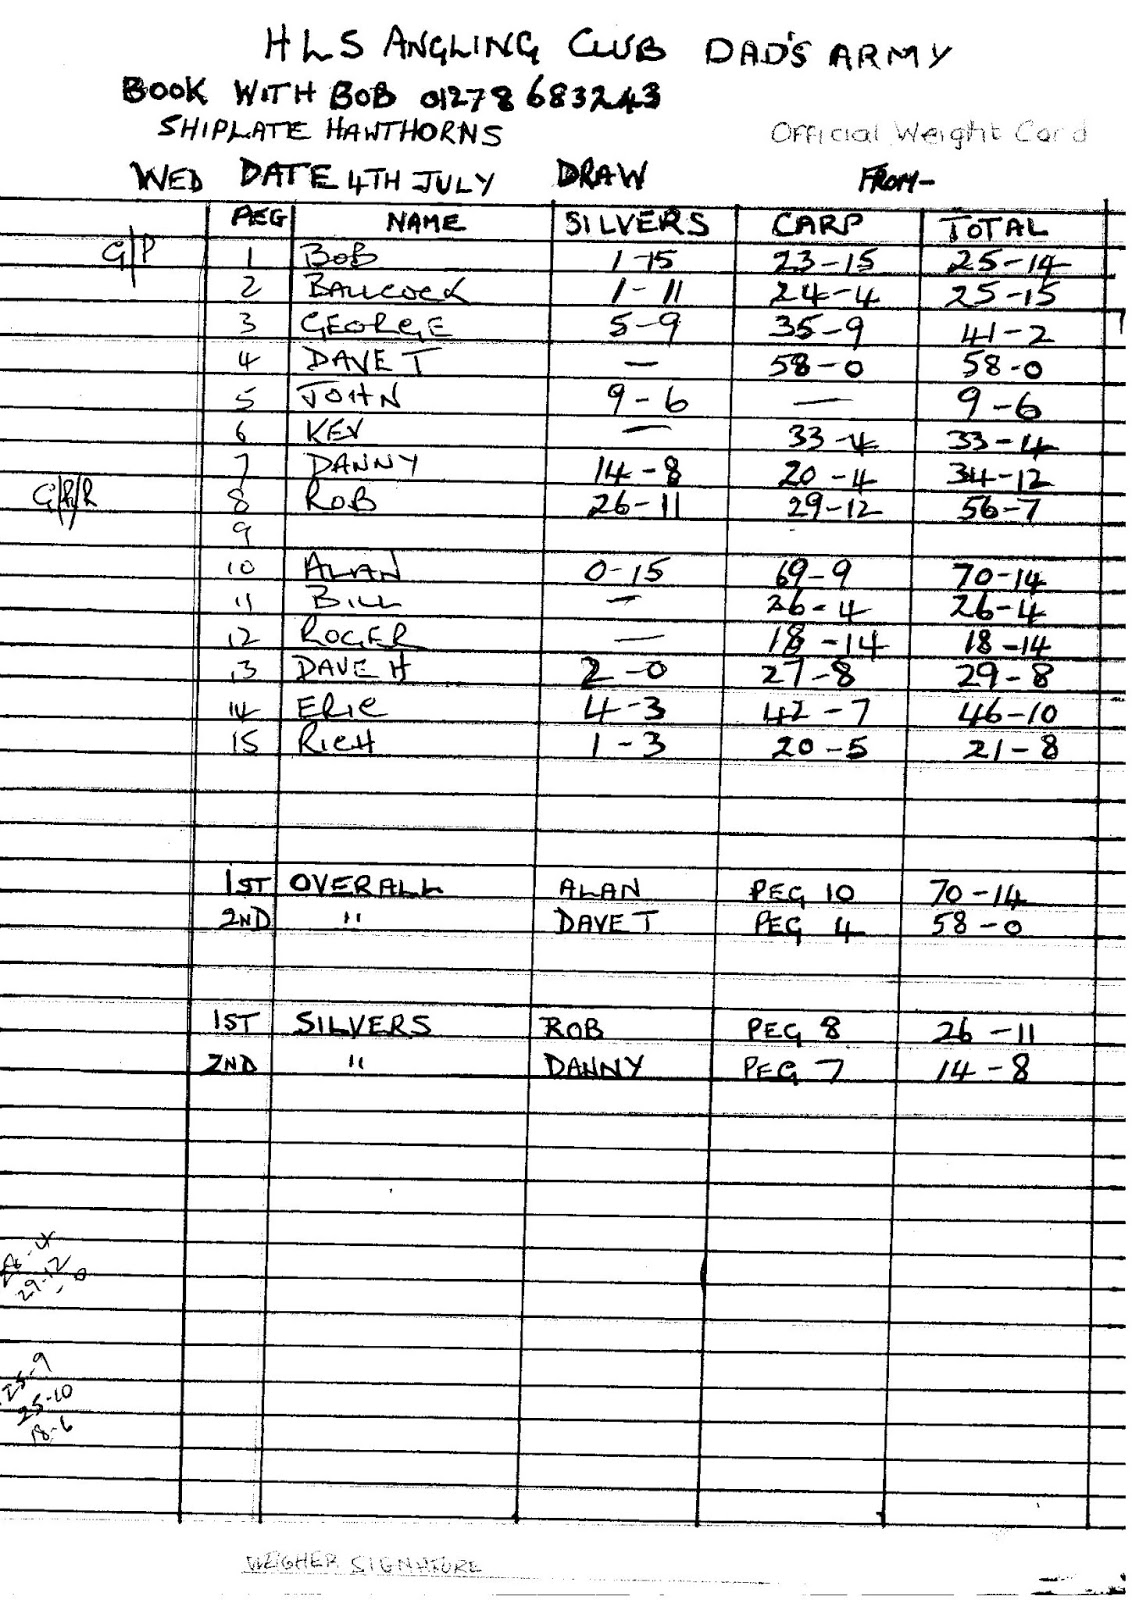 HLS ANGLING CLUB DAD'S ARMY
BOOK WITH BOB 01278 683243
SHIPLATE HAWTHORNS Official Weight Card
WED DATE 4TH JULY DRAW FROM-
PEG NAME SILVERS CARP TOTAL
G/P 1 BOB 1-15 23-15 25-14
2 BALLCOCK 1-11 24-4 25-15
3 GEORGE 5-9 35-9 41-2
4 DAVE T — 58-0 58-0
5 JOHN 9-6 — 9-6
6 KEV — 33-4 33-14
7 DANNY 14-8 20-4 34-12
8 ROB 26-11 29-12 56-7
9
10 ALAN 0-15 69-9 70-14
11 BILL — 26-4 26-4
12 ROGER — 18-14 18-14
13 DAVE H 2-0 27-8 29-8
14 ERIC 4-3 42-7 46-10
15 RICH 1-3 20-5 21-8
1ST OVERALL ALAN PEG 10 70-14
2ND " DAVE T PEG 4 58-0
1ST SILVERS ROB PEG 8 26-11
2ND " DANNY PEG 7 14-8
29-12
25-10
18-6
WEIGHER SIGNATURE